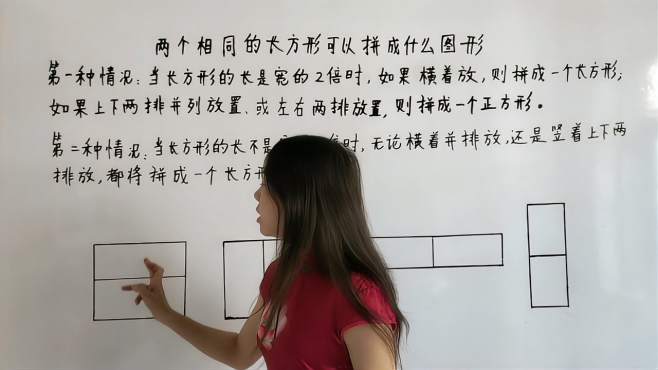 两个相同的长方形可以拼成什么图形
第一种情况:当长方形的长是宽的2倍时,如果横着放,则拼成一个长方形;
如果上下两排并列放置、或左右两排放置,则拼成一个正方形。
第二种情况:当长方形的长不是 倍时,无论横着并排放,还是竖着上下两
排放,都将拼成一个长方